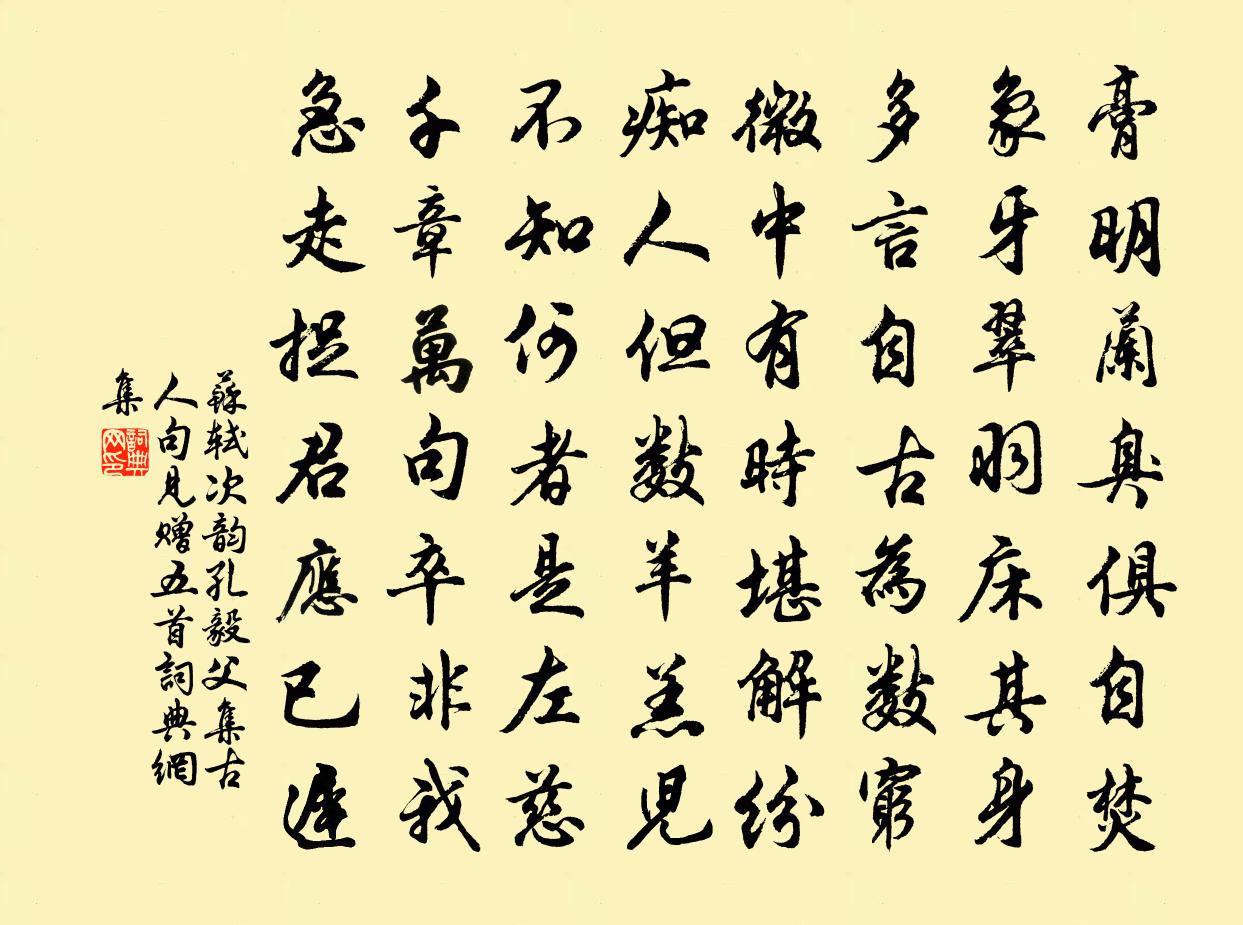 膏明蘭臭俱自焚
象牙翠羽床其身
多言自古為數窮
微中有時堪解紛
痴人但數羊羔兒
不知何者是左慈
千章萬句卒非我
急走捉君應已遲
蘇軾次韵孔毅父集古
人句見贈五首詞典網
集
詞典網印